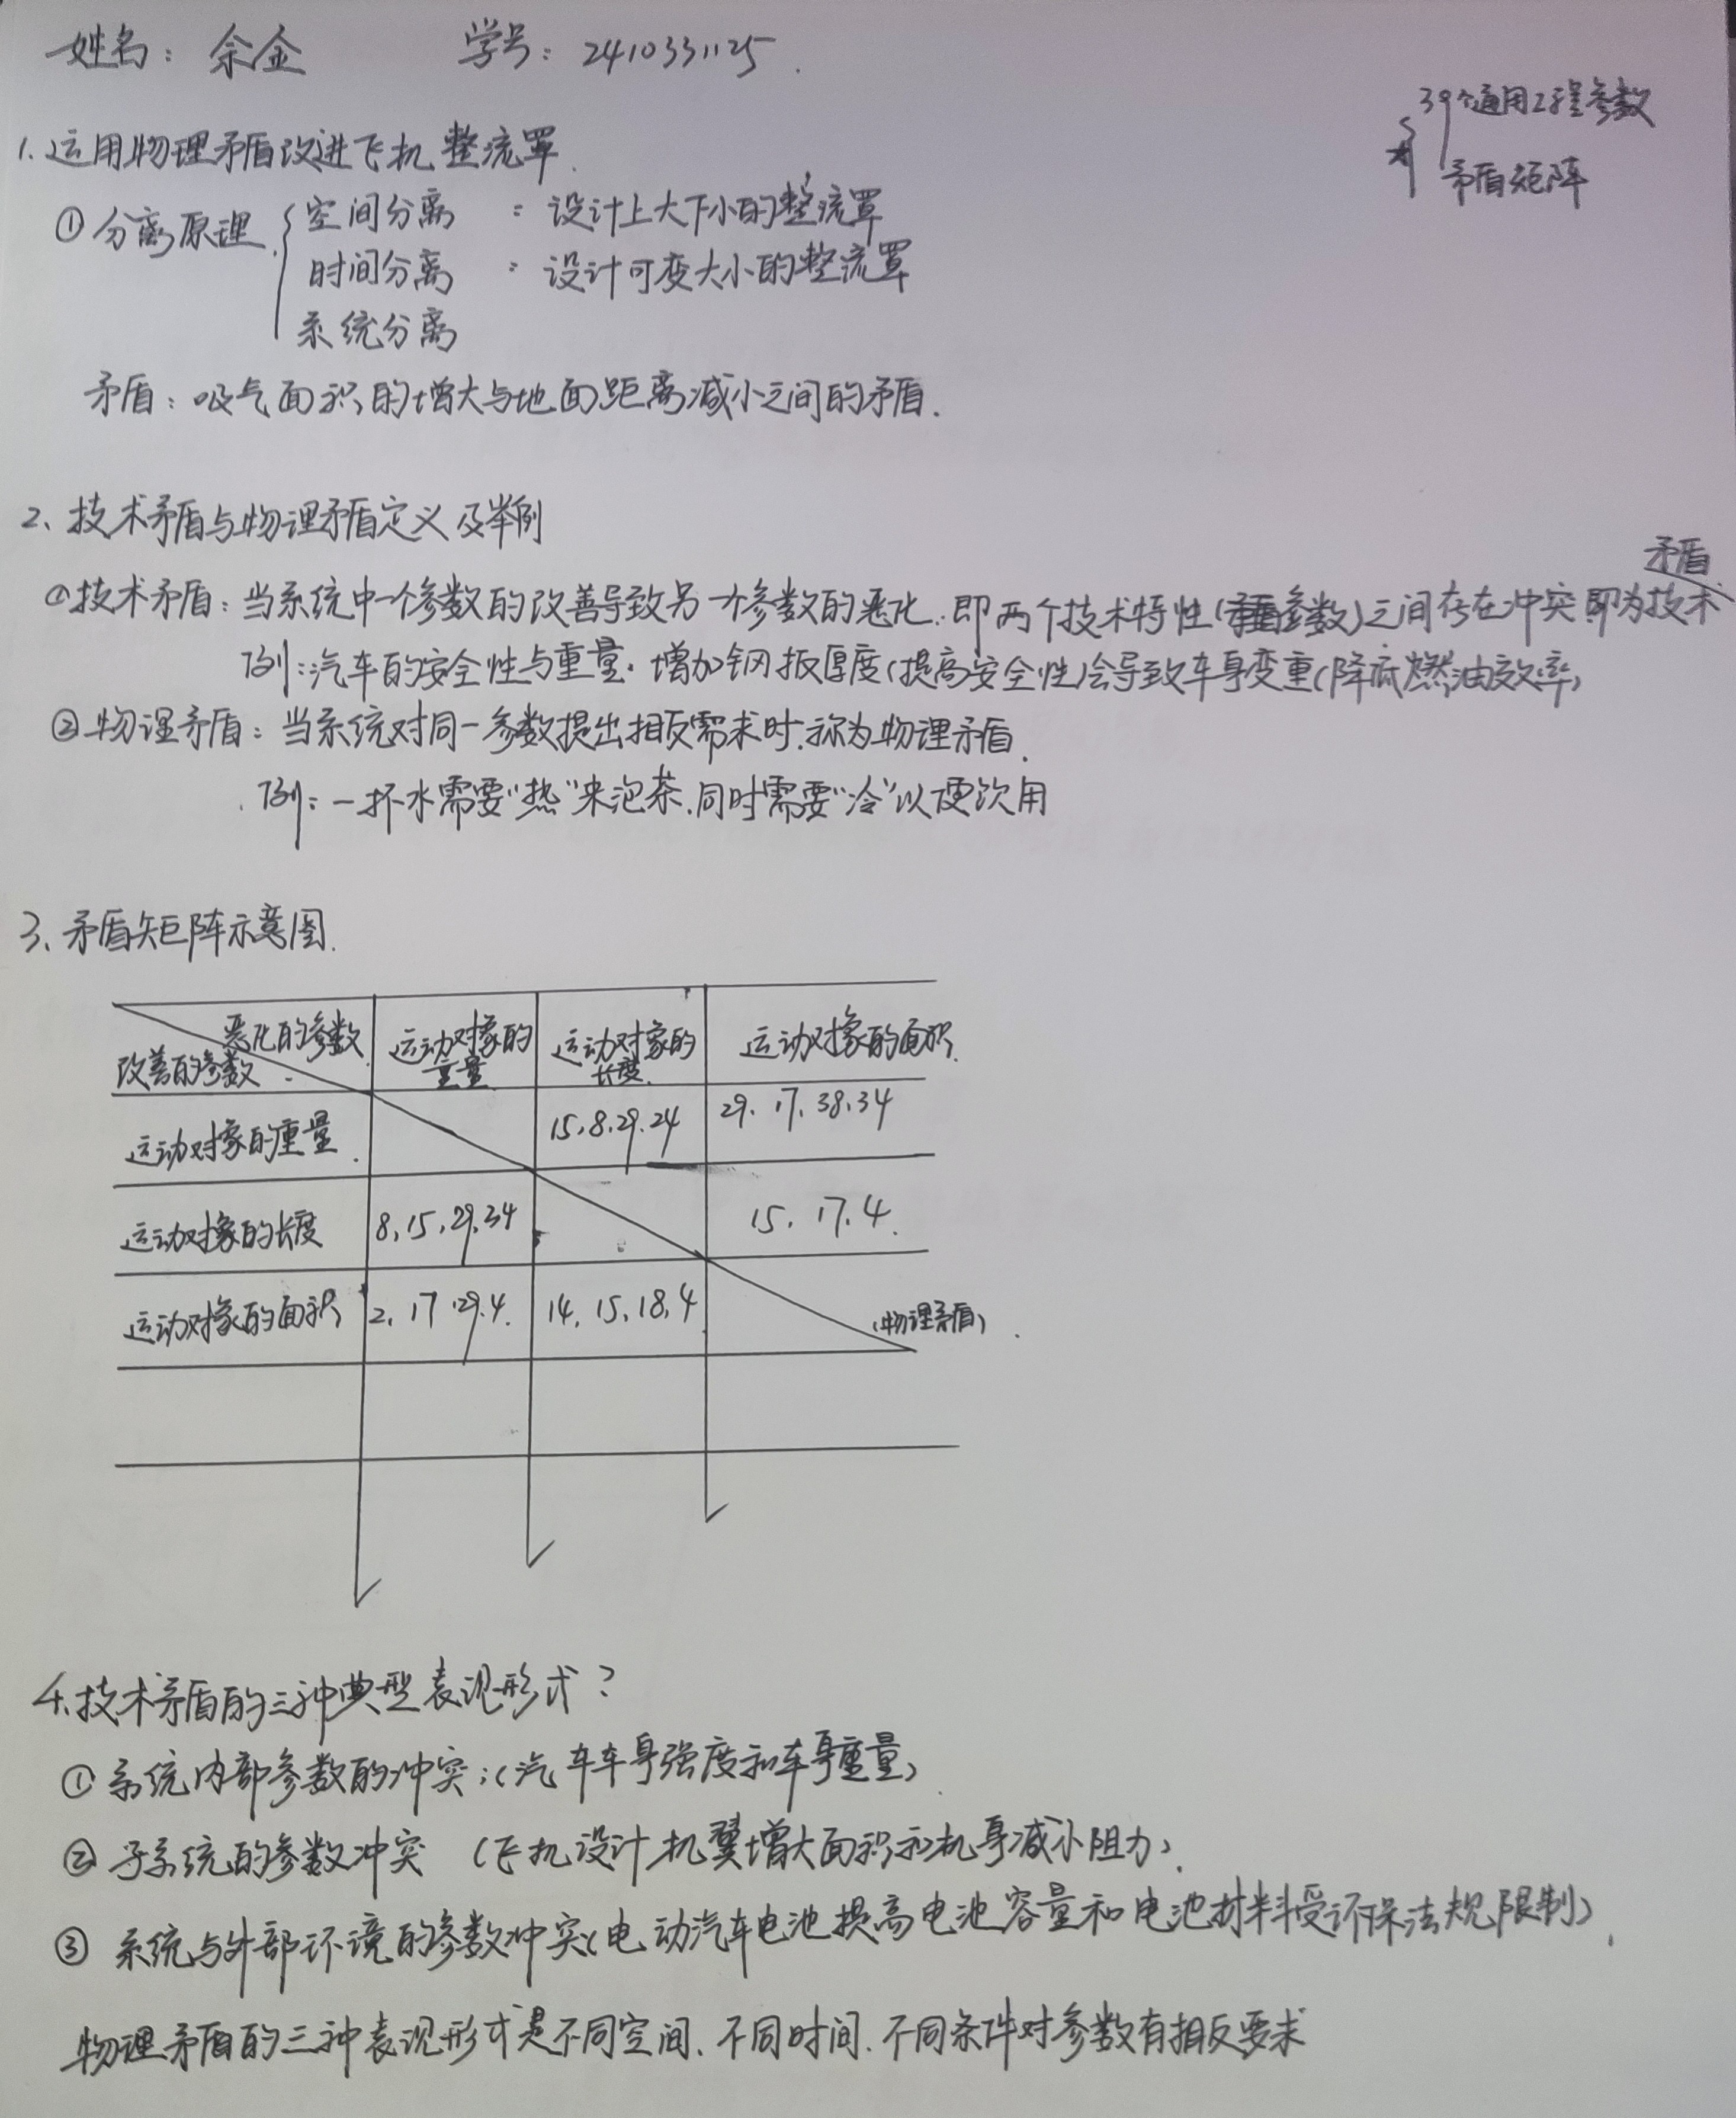 姓名：余金 学号：2410331125.
39个通用工程参数
矛盾矩阵
1.运用物理矛盾改进飞机整流罩.
①分离原理
空间分离 ：设计上大下小的整流罩
时间分离 ：设计可变大小的整流罩
系统分离
矛盾：吸气面积的增大与地面距离减小之间的矛盾.
2、技术矛盾与物理矛盾定义及举例
①技术矛盾：当系统中一个参数的改善导致另一个参数的恶化.即两个技术特性(参数)之间存在冲突即为技术矛盾
例:汽车的安全性与重量.增加钢板厚度(提高安全性)会导致车身变重(降低燃油效率)
②物理矛盾：当系统对同一参数提出相反需求时.称为物理矛盾.
例：一杯水需要"热"来泡茶.同时需要"冷"以便饮用
3、矛盾矩阵示意图.
恶化的参数 运动对象的重量 运动对象的长度 运动对象的面积
改善的参数
运动对象的重量 15,8,29,24 29.17,38,34
运动对象的长度 8,15,29,34 15,17,4
运动对象的面积 2,17,29,4. 14,15,18,4 (物理矛盾)
4.技术矛盾的三种典型表现形式？
①系统内部参数的冲突;(汽车车身强度和车身重量)
②子系统的参数冲突 (飞机设计机翼增大面积和机身减小阻力).
③系统与外部环境的参数冲突(电动汽车电池提高电池容量和电池材料受环保法规限制)
物理矛盾的三种表现形式是不同空间、不同时间.不同条件对参数有相反要求